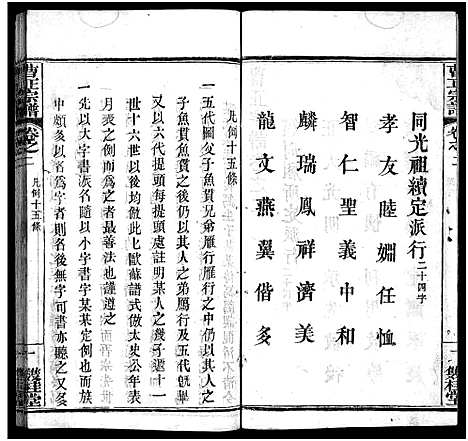 曹氏宗譜
卷之二
同光祖續定派行二十四字
孝友睦婣任恤
智仁聖義中和
麟瑞鳳祥濟美
龍文燕翼偕多
一
雙桂堂
凡例十五條
一五代圖父子魚貫兄弟雁行雁行之中仍以其人之
子魚貫魚貫之處仍以其人之弟屬行及五代旣畢
又以六代提頭每提頭處註明某人之幾子遞十一
世十六世以後均倣此乃歐蘇譜式倣太史公年表
月表之例而爲之者最善法也謹遵之
一先以大字書派名隨以小字書字某某定例也而族
中頗多以名爲字者則名後無字可書亦聽之又多
曹氏宗譜
卷之二
凡例十五條
一
雙桂堂